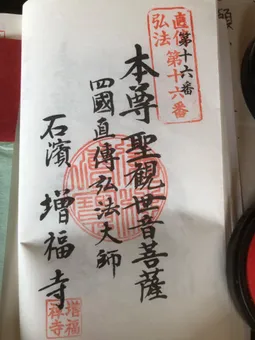 直伝弘法
第十六番
第十六番
本尊聖観世音菩薩
四國直傳弘法大師
石濱増福寺
増福禅寺
願